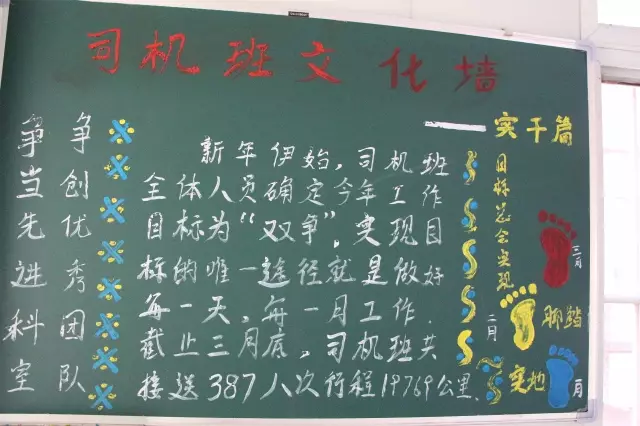 司机班文化墙
——实干篇
争创优秀团队
争当先进科室
新年伊始，司机班
全体人员确定今年工作
目标为“双争”，实现目
标的唯一途径就是做好
每一天，每一月工作．
截止三月底，司机班共
接送387人次行程19769公里．
目标总会实现
三月
二月
脚踏
实地
月